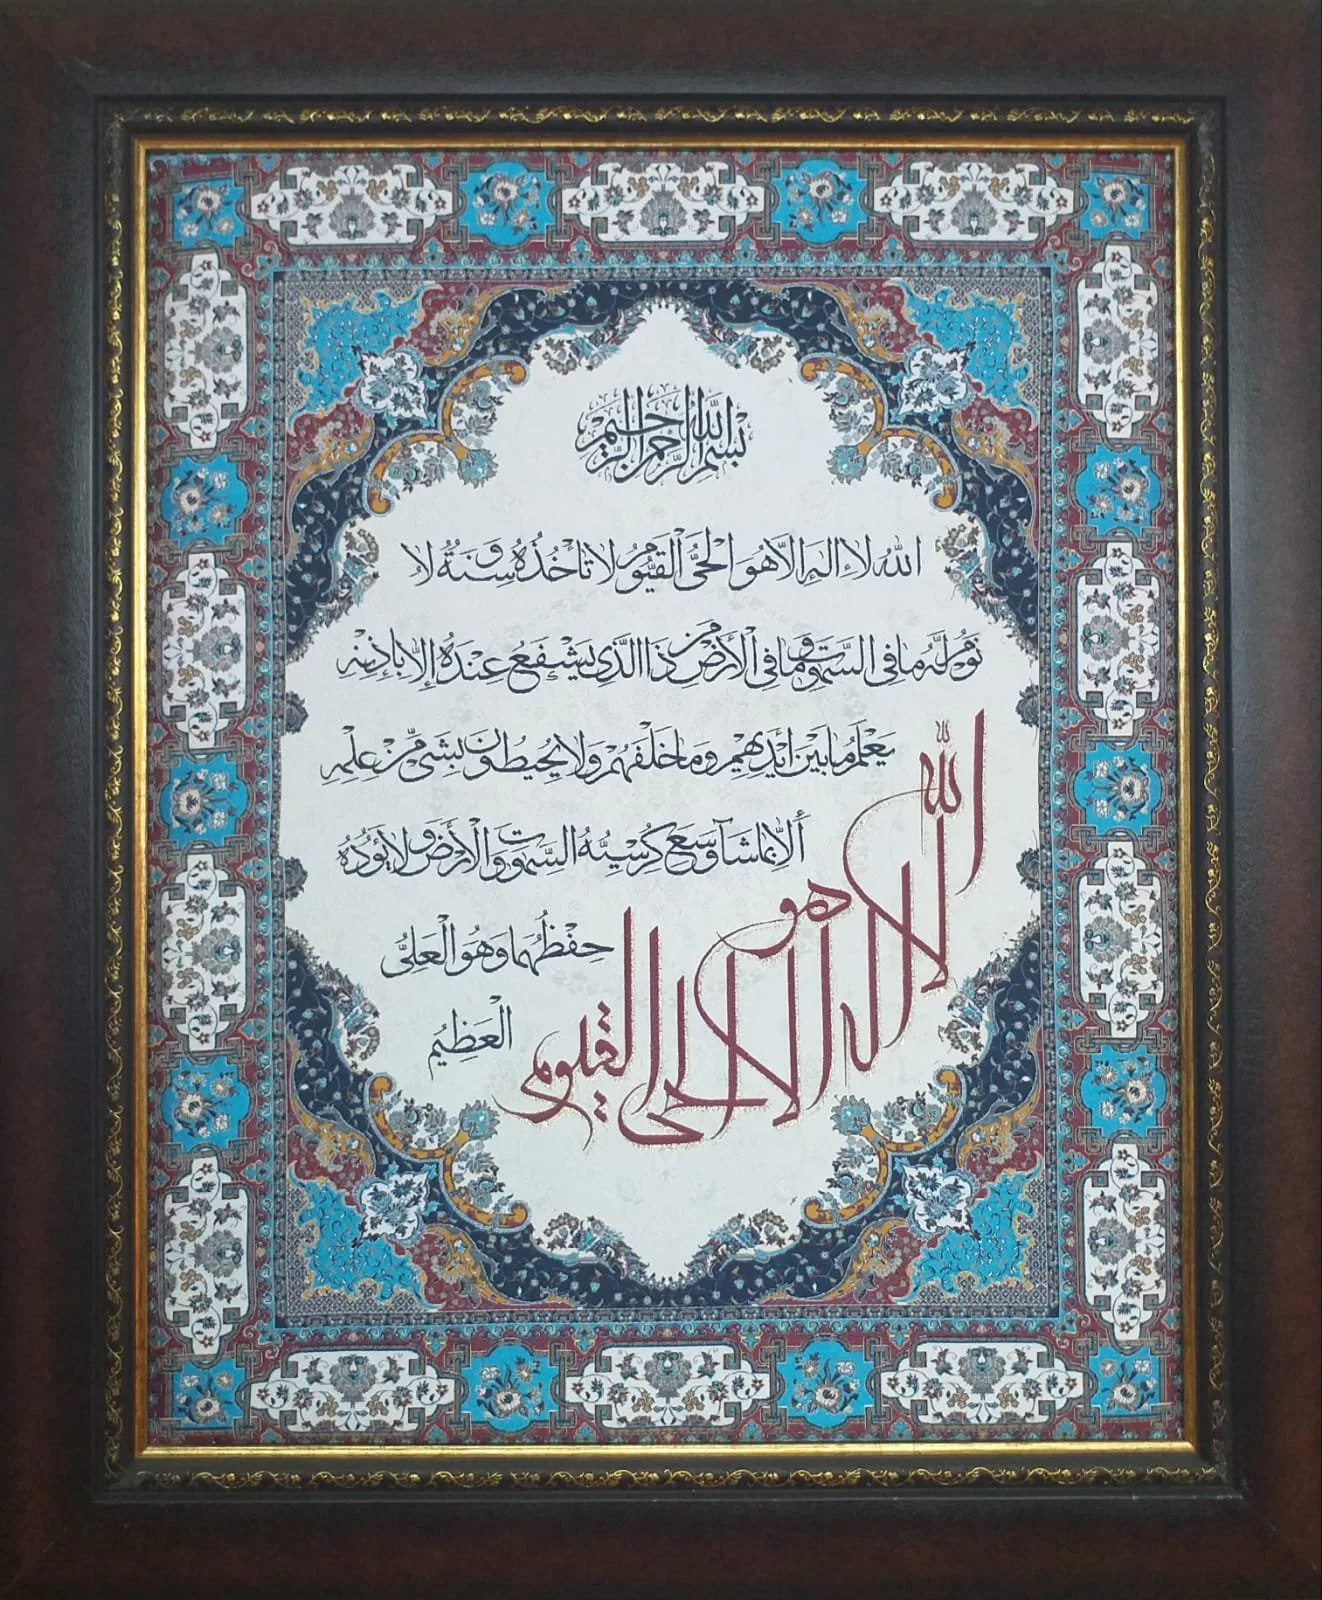 بسم الله الرحمن الرحيم
اللهُ لا اله الا هُوا لحَيُّ القَيُّومُ لا تأخُذُهُ سِنَةٌ و لا
نَومٌ لَهُ ما في السَّموت وما في الأرضِ مَن ذَا الَّذِي يَشْفَعُ عِندَهُ إلا بإذنِه
يَعْلَمُ ما بَينَ أَيْدِيهِم وما خَلْفَهُمْ ولا يُحيطُون بِشَيْ مِّنْ عِلْمِه
ألا بِما شآ وَسِعَ كُرسِيُّهُ السَّموتِ والْأرْضَ و لا يَؤُدُهُ
حِفْظُهُما وَهُوَ الْعَلىُّ
الْعَظِيمُ
الله لا اله الا هو الحي القيوم